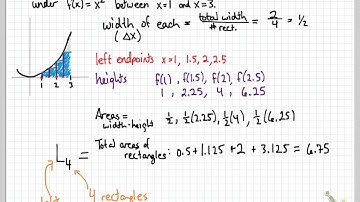 under f(x) = x² between x=1 and x=3.
width of each = total width / # rect. = 2/4 = 1/2
(Δx)
left endpoints x=1, 1.5, 2, 2.5
heights f(1), f(1.5), f(2), f(2.5)
1, 2.25, 4, 6.25
1 2 3
Areas = 1/2, 1/2(2.25), 1/2(4), 1/2(6.25)
width·height
L₄ = Total areas of rectangles: 0.5 + 1.125 + 2 + 3.125 = 6.75
left 4 rectangles